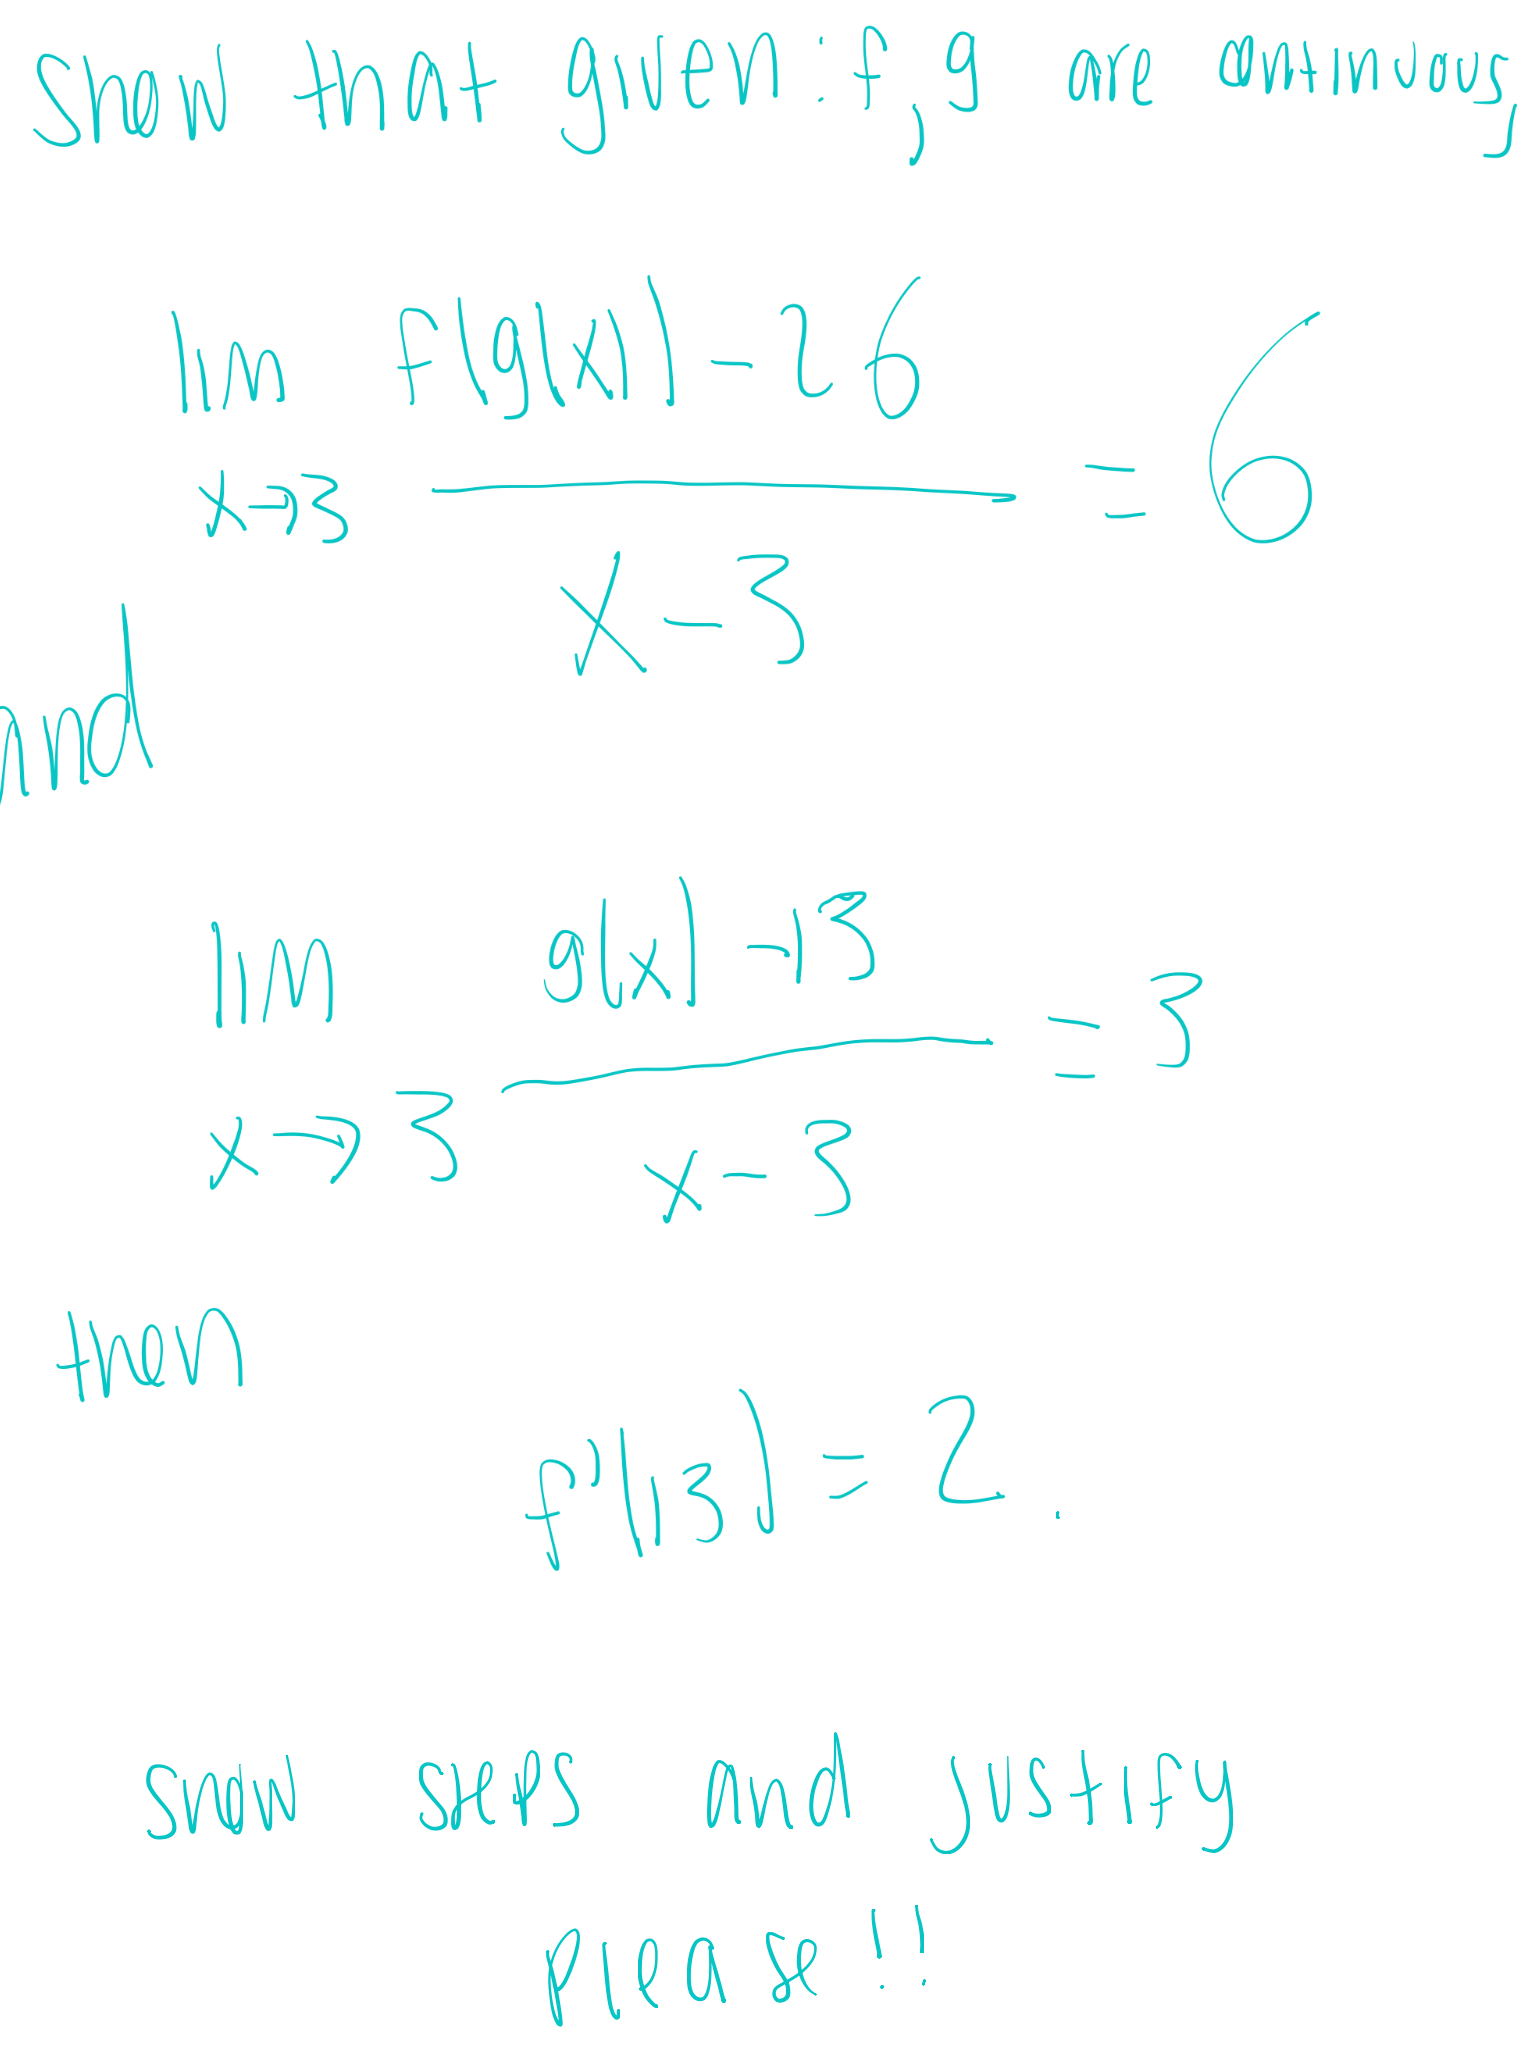 Show that given: f, g are continuous,
lim f(g(x)) - 26
x→3 x - 3 = 6
and
lim g(x) - 13
x→3 x - 3 = 3
then
f'(13) = 2.
show steps and justify
please!!